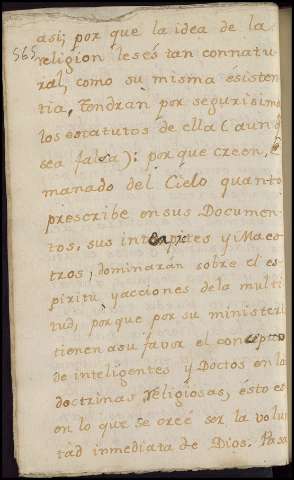 asi; por que la idea de la
565
religion les és tan connatu-
ral, como su misma ésisten-
tia, tendran por segurisimo
los estatutos de ella (aunq
sea falsa): por que creen, é
manado del Cielo quanto
prescribe en sus Documen-
tos, sus interpites y Maes
tros, dominarán sobre el es-
piritu y acciones dela multi
tud, porque por su ministeri
tienen asu favor el concepto
de inteligentes y Doctos en la
doctrinas religiosas, ésto es
en lo que se creé ser la volun
tad inmediata de Dios. Pasa